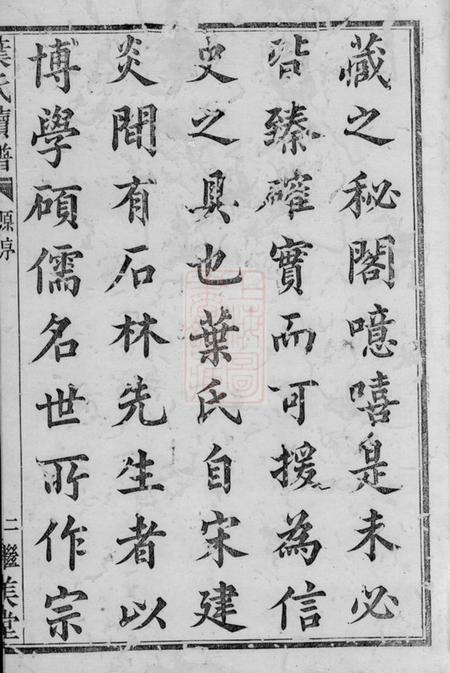 藏之秘閣噫嘻是未必
皆臻確實而可援為信
史之具也葉氏自宋建
炎間有石林先生者以
博學碩儒名世所作宗
葉氏續譜
原序
二
繼美堂